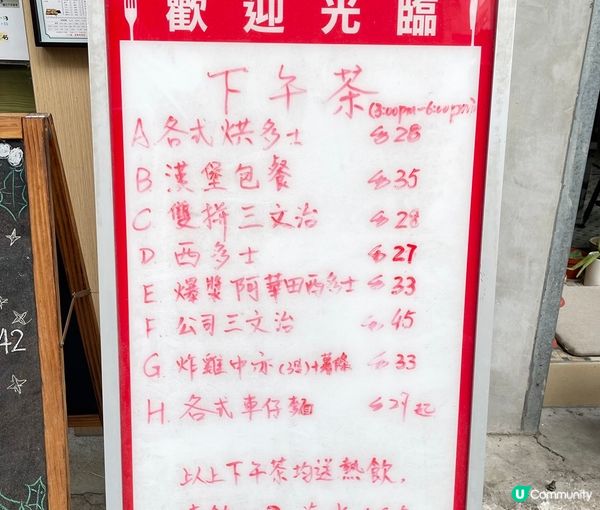 歡迎光臨
下午茶 (3:00pm-6:00pm)
A 各式烘多士 $28
B 漢堡包餐 $35
C. 雙拼三文治 $28
D. 西多士 $27
E. 爆漿阿華田西多士 $33
F. 公司三文治 $45
G. 炸雞中亦(3隻)+薯條 $33
H. 各式車仔麵 $27起
以上下午茶均送熱飲,
42
U Community